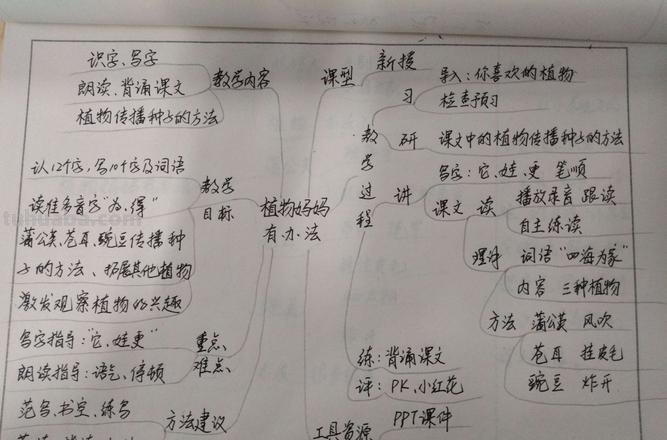 识字、写字
朗读、背诵课文
植物传播种子的方法
教学内容
认12个字，写10个字及词语
读准多音字"为、得"
蒲公英、苍耳、豌豆传播种
子的方法、拓展其他植物
激发观察植物的兴趣
教学
目标
写字指导："它、娃、更"
朗读指导：语气、停顿
重点、
难点、
范写、书空、练写
方法建议
植物妈妈
有办法
课型
新授
教学过程
习
导入：你喜欢的植物
检查预习
研
课文中的植物传播种子的方法
讲
写字：它、娃、更 笔顺
课文
读
播放录音 跟读
自主练读
理解
词语"四海为家"
内容 三种植物
方法
蒲公英 风吹
苍耳 挂皮毛
豌豆 炸开
练：背诵课文
评：PK、小红花
工具资源
PPT课件